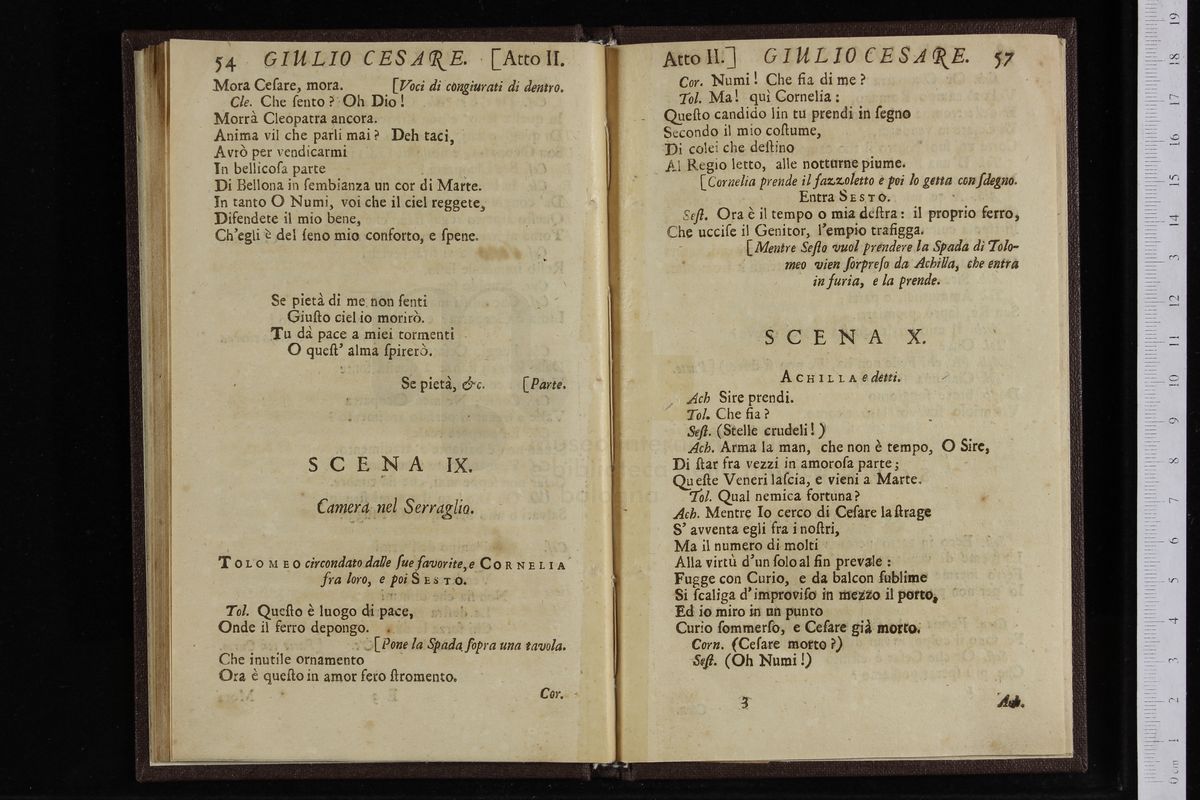 54 GIULIO CESARE. [Atto II.
Mora Ceſare, mora. [Voci di congiurati di dentro.
Cle. Che ſento? Oh Dio!
Morrà Cleopatra ancora.
Anima vil che parli mai? Deh taci,
Avrò per vendicarmi
In bellicoſa parte
Di Bellona in ſembianza un cor di Marte.
In tanto O Numi, voi che il ciel reggete,
Difendete il mio bene,
Ch'egli è del ſeno mio conforto, e ſpene.
Se pietà di me non ſenti
Giuſto ciel io morirò.
Tu dà pace a miei tormenti
O queſt' alma ſpirerò.
Se pietà, &c. [Parte.
SCENA IX.
Camera nel Serraglio.
TOLOMEO circondato dalle ſue favorite, e CORNELIA
fra loro, e poi SESTO.
Tol. Queſto è luogo di pace,
Onde il ferro depongo.
[Pone la Spada ſopra una tavola.
Che inutile ornamento
Ora è queſto in amor fero ſtromento.
Cor.
Atto II.] GIULIO CESARE. 57
Cor. Numi! Che fia di me?
Tol. Ma! quì Cornelia:
Queſto candido lin tu prendi in ſegno
Secondo il mio coſtume,
Di colei che deſtino
Al Regio letto, alle notturne piume.
[Cornelia prende il fazzoletto e poi lo getta con ſdegno.
Entra SESTO.
Seſt. Ora è il tempo o mia deſtra: il proprio ferro,
Che ucciſe il Genitor, l'empio trafigga.
[Mentre Seſto vuol prendere la Spada di Tolo-
meo vien ſorpreſo da Achilla, che entra
in furia, e la prende.
SCENA X.
ACHILLA e detti.
Ach Sire prendi.
Tol. Che fia?
Seſt. (Stelle crudeli!)
Ach. Arma la man, che non è tempo, O Sire,
Di ſtar fra vezzi in amoroſa parte;
Queſte Veneri laſcia, e vieni a Marte.
Tol. Qual nemica fortuna?
Ach. Mentre Io cerco di Ceſare la ſtrage
S' avventa egli fra i noſtri,
Ma il numero di molti
Alla virtù d'un ſolo al fin prevale:
Fugge con Curio, e da balcon ſublime
Si ſcaliga d'improviſo in mezzo il porto,
Ed io miro in un punto
Curio ſommerſo, e Ceſare già morto.
Corn. (Ceſare morto?)
Seſt. (Oh Numi!)
3 Ach.